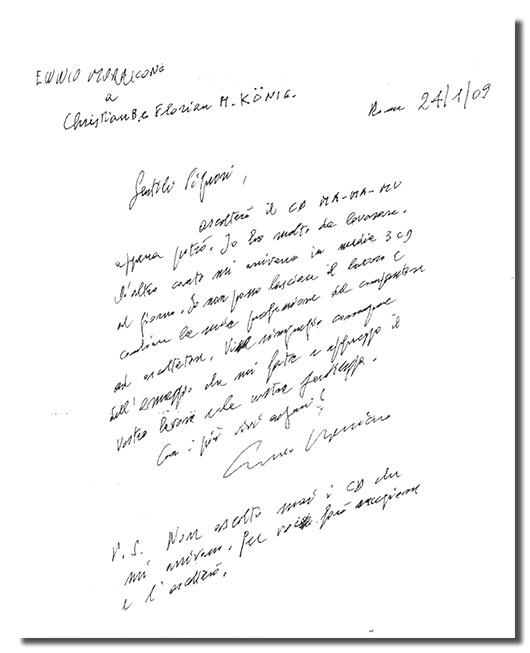 ENNIO MORRICONE
a
Christian B. e Florian M. KÖNIG.
Roma 24/1/09
Gentili Signori,
ascolterò il CD MA-MA-MU
appena potrò. Io ho molto da lavorare.
D'altro canto mi arrivano in media 3 CD
al giorno. Io non posso lasciare il lavoro e
cambiare la mia professione da compositore
ad ascoltatore. Vi ringrazio comunque
dell'omaggio che mi fate e apprezzo il
vostro lavoro e la vostra
Con i più vivi auguri
Ennio Morricone
P.S. Non ascolto mai i CD che
mi arrivano. Per voi farò eccezione
e l'ascolterò.